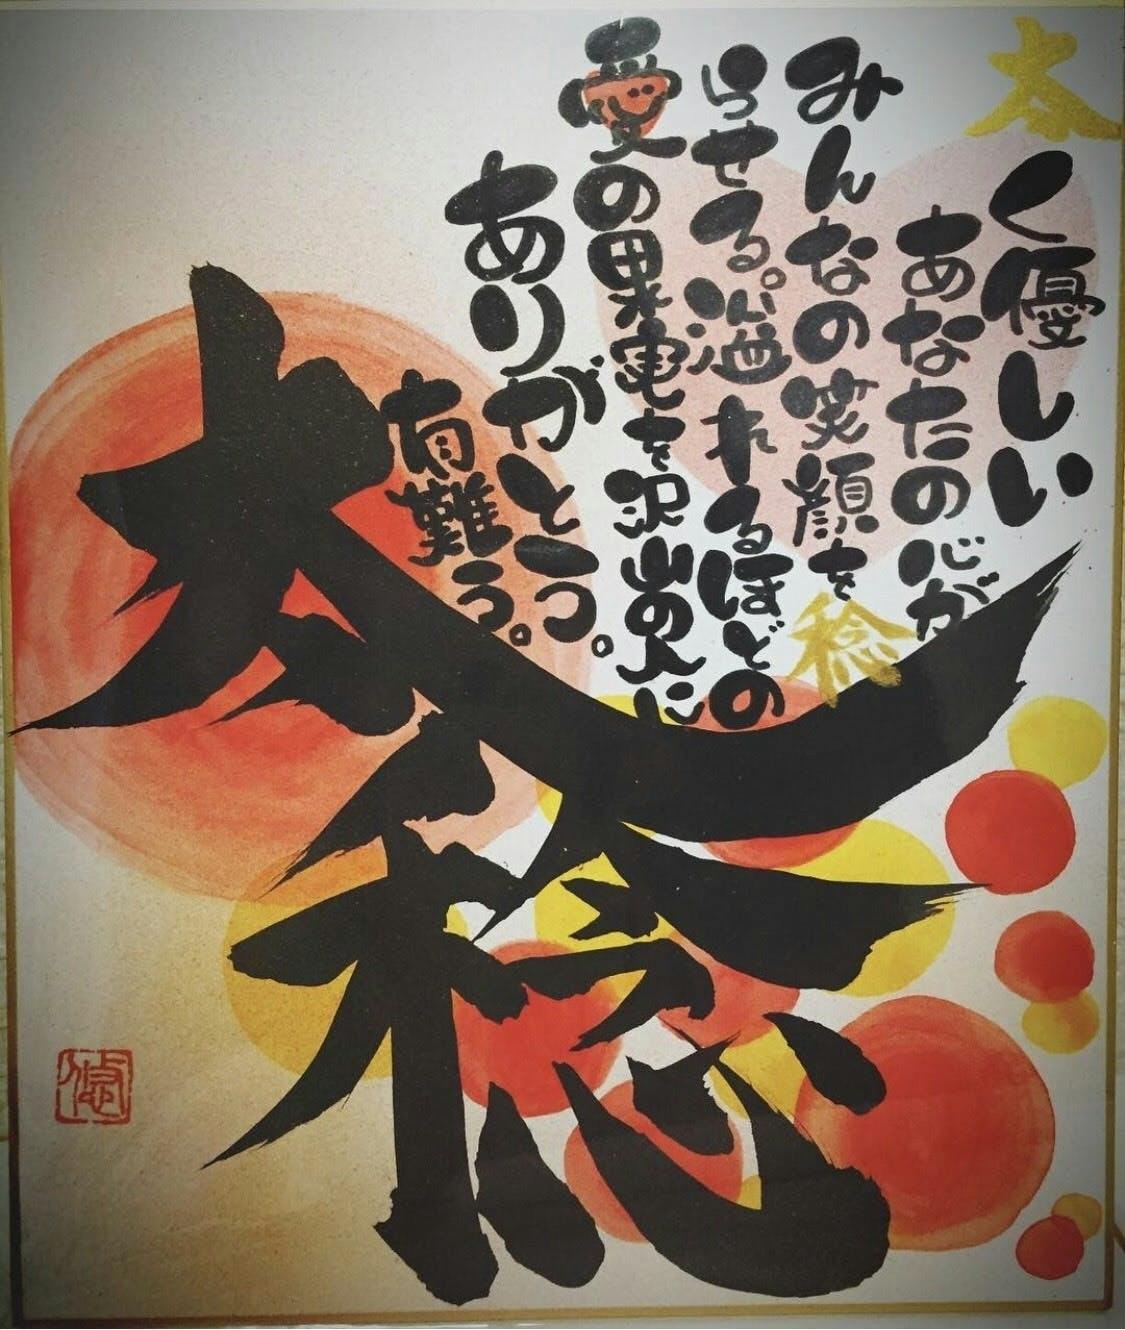 太く優しい
あなたの心が
みんなの笑顔を稔
らせる。溢れるほどの
愛の果実を沢山の人に
ありがとう。
有難う。
太稔